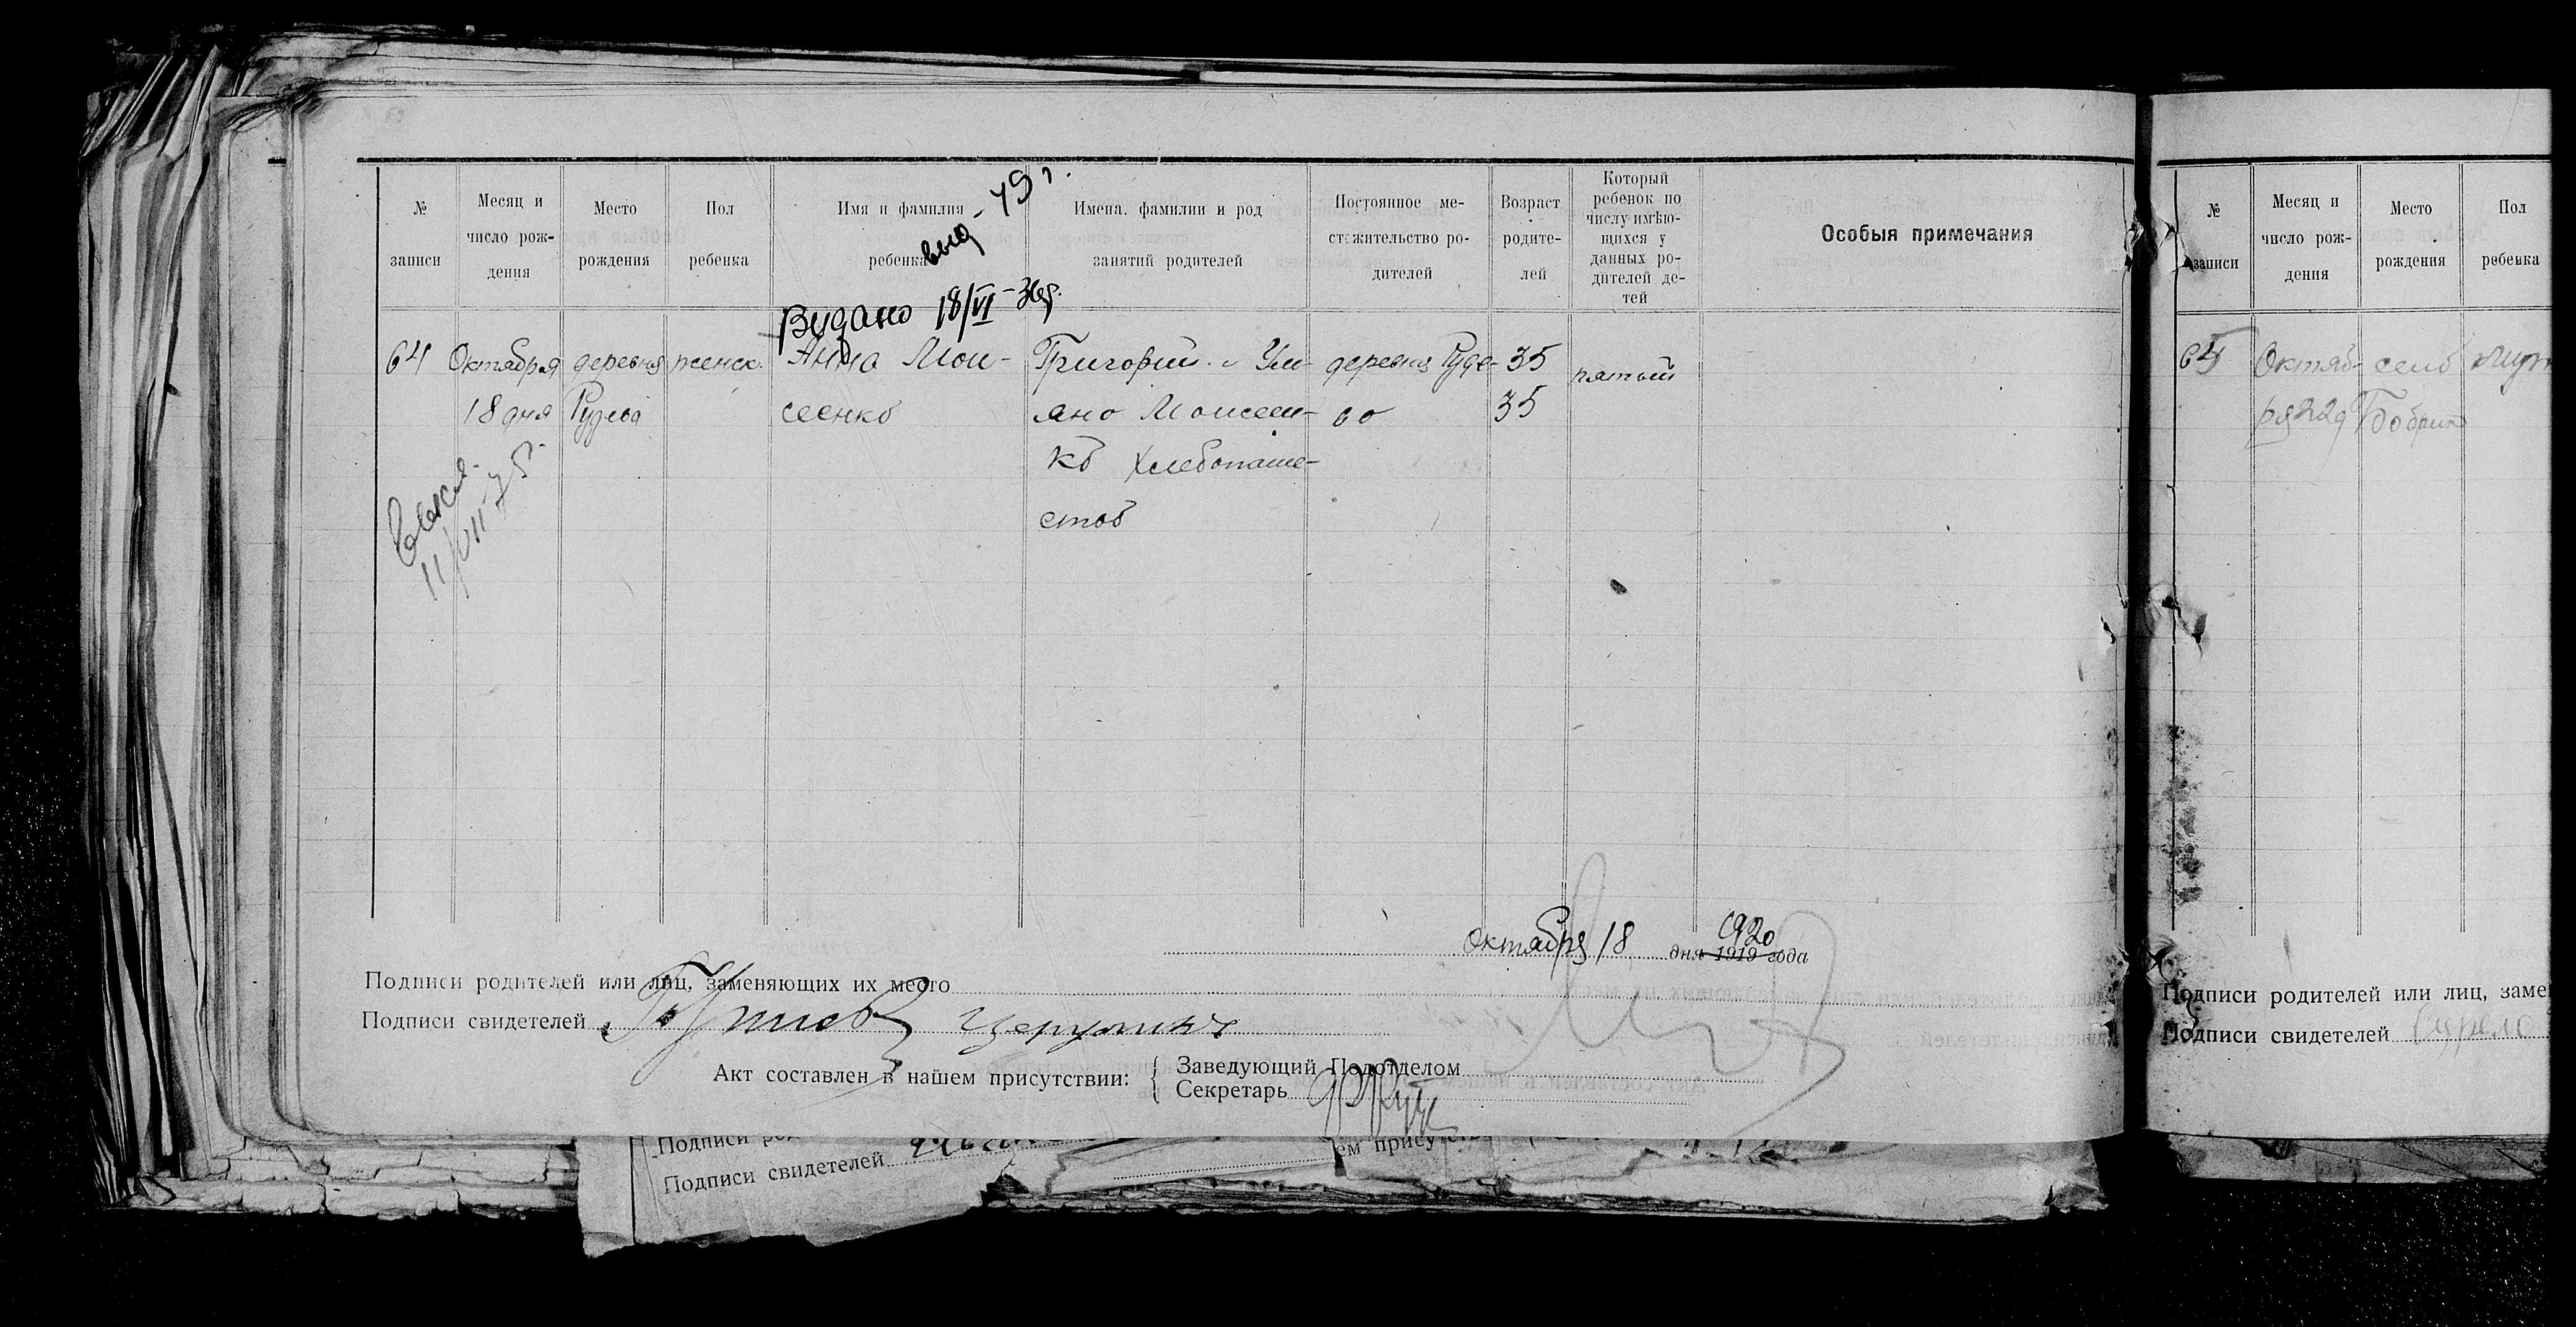 № записи
Месяц и число рождения
Место рождения
Пол ребенка
Имя и фамилия ребенка
Имена. фамилии и род занятий родителей
Постоянное местожительство родителей
Возраст родителей
Который ребенок по числу имѣющихся у данных родителей детей
Особыя примечания
Видано 18/VI - 36р.
64 Октября деревня женск. Анна Мои- Григорий и Ули- деревня Руде- 35 пятый
18 дня Рудева сеенко яно Моисеен- во 35
ко Хлебопаше-
ство
11/VII-75
октября 18 дня 1919 года
1920
Подписи родителей или лиц, заменяющих их место
Подписи свидетелей
Акт составлен в нашем присутствии: { Заведующий Подотделом
Секретарь
Подписи
Подписи свидетелей
ем присутств
№ записи
Месяц и число рождения
Место рождения
Пол ребенка
65 Октяб- село
ря 22 д
Подписи родителей или лиц, заме
Подписи свидетелей